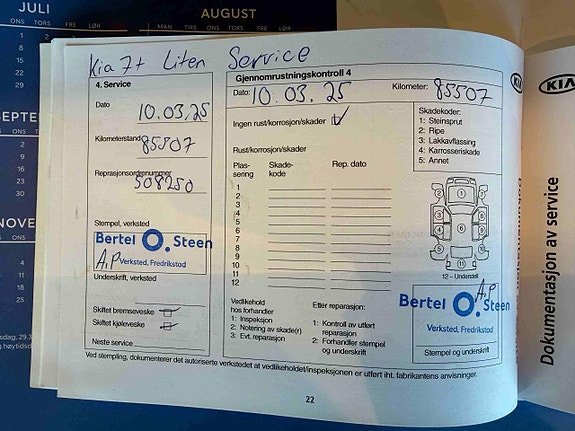 JULI
AUGUST
ONS TORS FRE LØR
TORS FRE LØR
Kia 7+ Liten Service
4. Service
Dato 10.03.25
Kilometerstand 85507
Reprasjonsordrenummer 508250
Stempel, verksted
Bertel O. Steen
A.P Verksted, Fredrikstad
Underskrift, verksted
Skiftet bremsevæske
Skiftet kjølevæske
Neste service
Gjennomrustningskontroll 4
Dato: 10.03.25 Kilometer: 85507
Ingen rust/korrosjon/skader
Rust/korrosjon/skader
Plas-sering Skade-kode Rep. dato
1
2
3
4
5
6
7
8
9
10
11
12
Skadekoder:
1: Steinsprut
2: Ripe
3: Lakkavflassing
4: Karrosseriskade
5: Annet
12 – Underdell
Vedlikehold
hos forhandler
1: Inspeksjon
2: Notering av skade(r)
3: Evt. reparasjon
Etter reparasjon:
1: Kontroll av utført
reparasjon
2: Forhandler stempel
og underskrift
A.P
Bertel O. Steen
Verksted, Fredrikstad
Stempel og underskrift
Ved stempling, dokumenterer det autoriserte verkstedet at vedlikeholdet/inspeksjonen er utført iht. fabrikantens anvisninger.
22
KIA
Dokumentasjon av service